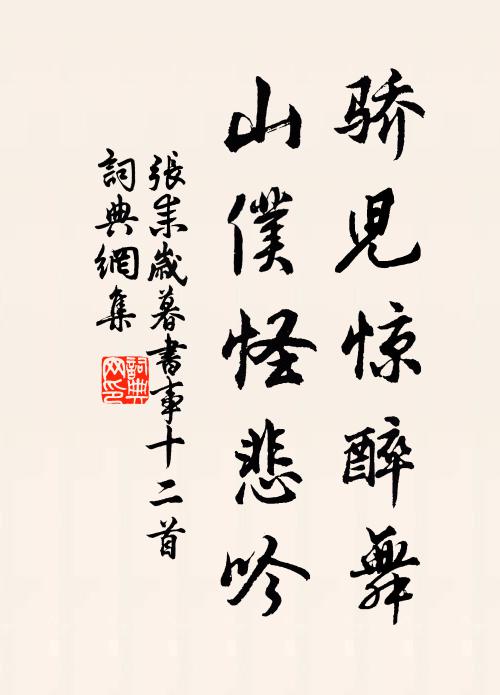 骄児惊醉舞
山僕怪悲吟
張耒歳暮書事十二首
詞典網集
詞典
网印